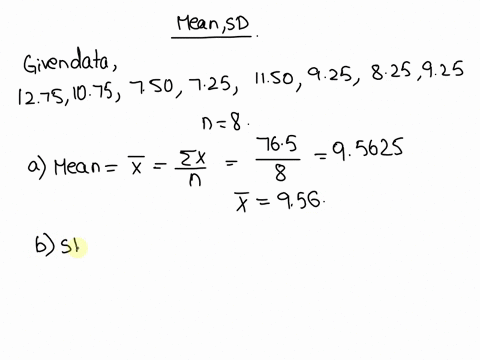 Mean, SD.
Given data,
12.75, 10.75, 7.50, 7.25, 11.50, 9.25, 8.25, 9.25
n = 8.
a) Mean = x̄ = Σx/n = 76.5/8 = 9.5625
x̄ = 9.56.
b) SI